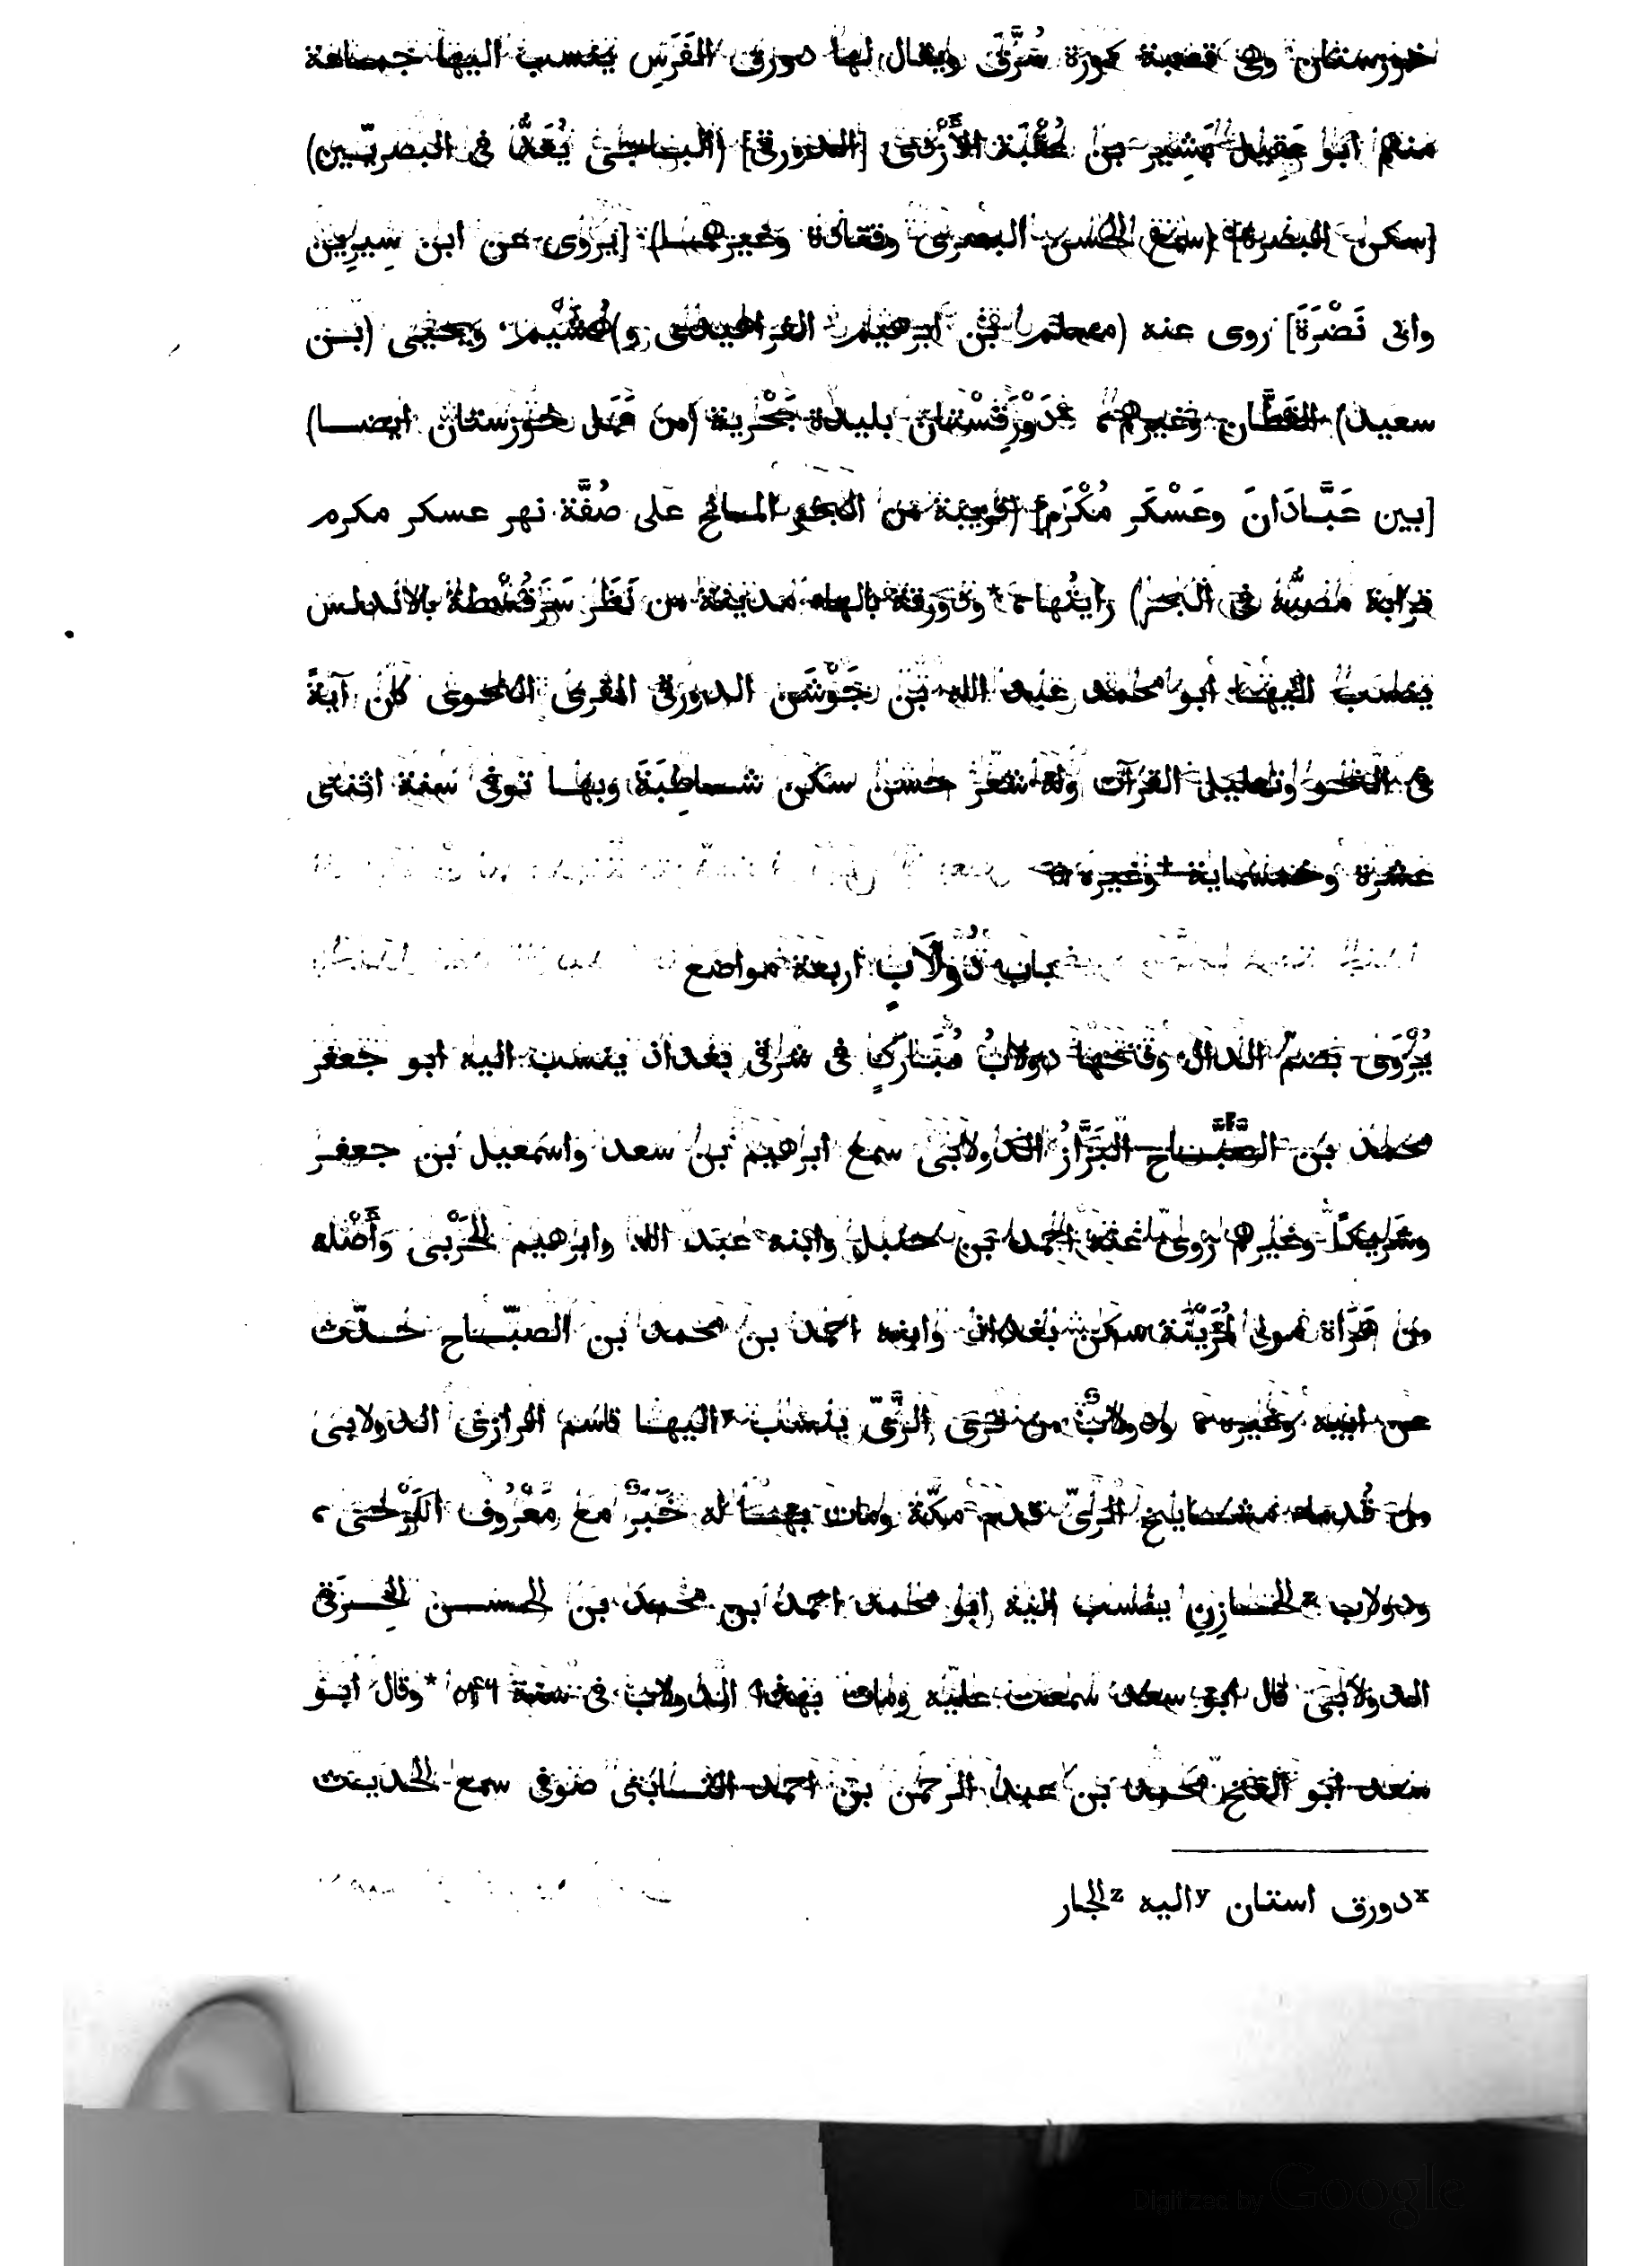 خوزستان وهى قصبة كورة سُرَّقَ ويقال لها دورق الفُرس ينسب اليها جماعة
منهم ابو عَقِيل بَشِير بن عُقْبَة الأَزْدى [الدورقى] (الناجى يُعَدُّ فى البصريّين)
[سكن البصرة] (سمع الحسن البصرى وقتادة وغيرهما) [يروى عن ابن سِيرِين
وابى نَضْرَة] روى عنه (مسلم بن ابرهيم الفراهيدى و)هُشَيْم ويحيى (بن
سعيد) القَطَّان وغيرهم، ˣدَوْرَقِسْتان بليدة بَحْرية (من عَمَل خوزستان ايضا)
[بين عَبَّادَانَ وعَسْكَر مُكْرَم] (قريبة من البحر المالح على ضُفَّة نهر عسكر مكرم
قرابة مَصَبّه فى البحر) رايتُها، *ودَوْرَقة بالهاء مدينة من نَظَر سَرَقُسْطة بالاندلس
ينسب اليها ابو محمد عبد الله بن جَوْشَن الدورقى المقرى النحوى كان آيةً
فى النحو وتعليل القرآن وله شعر حسن سكن شاطِبَةَ وبها توفى سنة اثنتى
عشرة وخمسماية *وغيره ۞
باب دُولَابٍ اربعة مواضع
يُرْوَى بضمّ الدال وفتحها دولابُ مُبَارَكٍ فى شرقى بغداد ينسب اليه ابو جعفر
محمد بن الصَّبَّاح البَزَّازُ الدولابى سمع ابرهيم بن سعد واسمعيل بن جعفر
وشَرِيكًا وغيرهم روى عنه احمد بن حنبل وابنه عبد الله وابرهيم الحَرْبى وأَصْله
من هَرَاة مولى لمُزَيْنَة سكن بغداد وابنه احمد بن محمد بن الصبّاح حدّث
عن ابيه وغيره، ودولابٌ من قرى الرَّىّ ينسب ʸاليها قاسم الرازى الدولابى
من قُدماء مشايخ الرىّ قدم مكّة ومات بها له خَبَرٌ مع مَعْرُوف الكَرْخى،
ودولاب ᶻالخازِنِ ينسب اليه ابو محمد احمد بن محمد بن الحسن الخِرَقى
الدولابى قال ابو سعد سمعت عليه ومات بهذا الدولاب فى سنة ٥۴٦ *وقال ابو
سعد ابو الفتح محمد بن عبد الرحمن بن احمد صوفى سمع الحديث
ˣدورق استان ʸاليه ᶻالجار
Digitized by Google